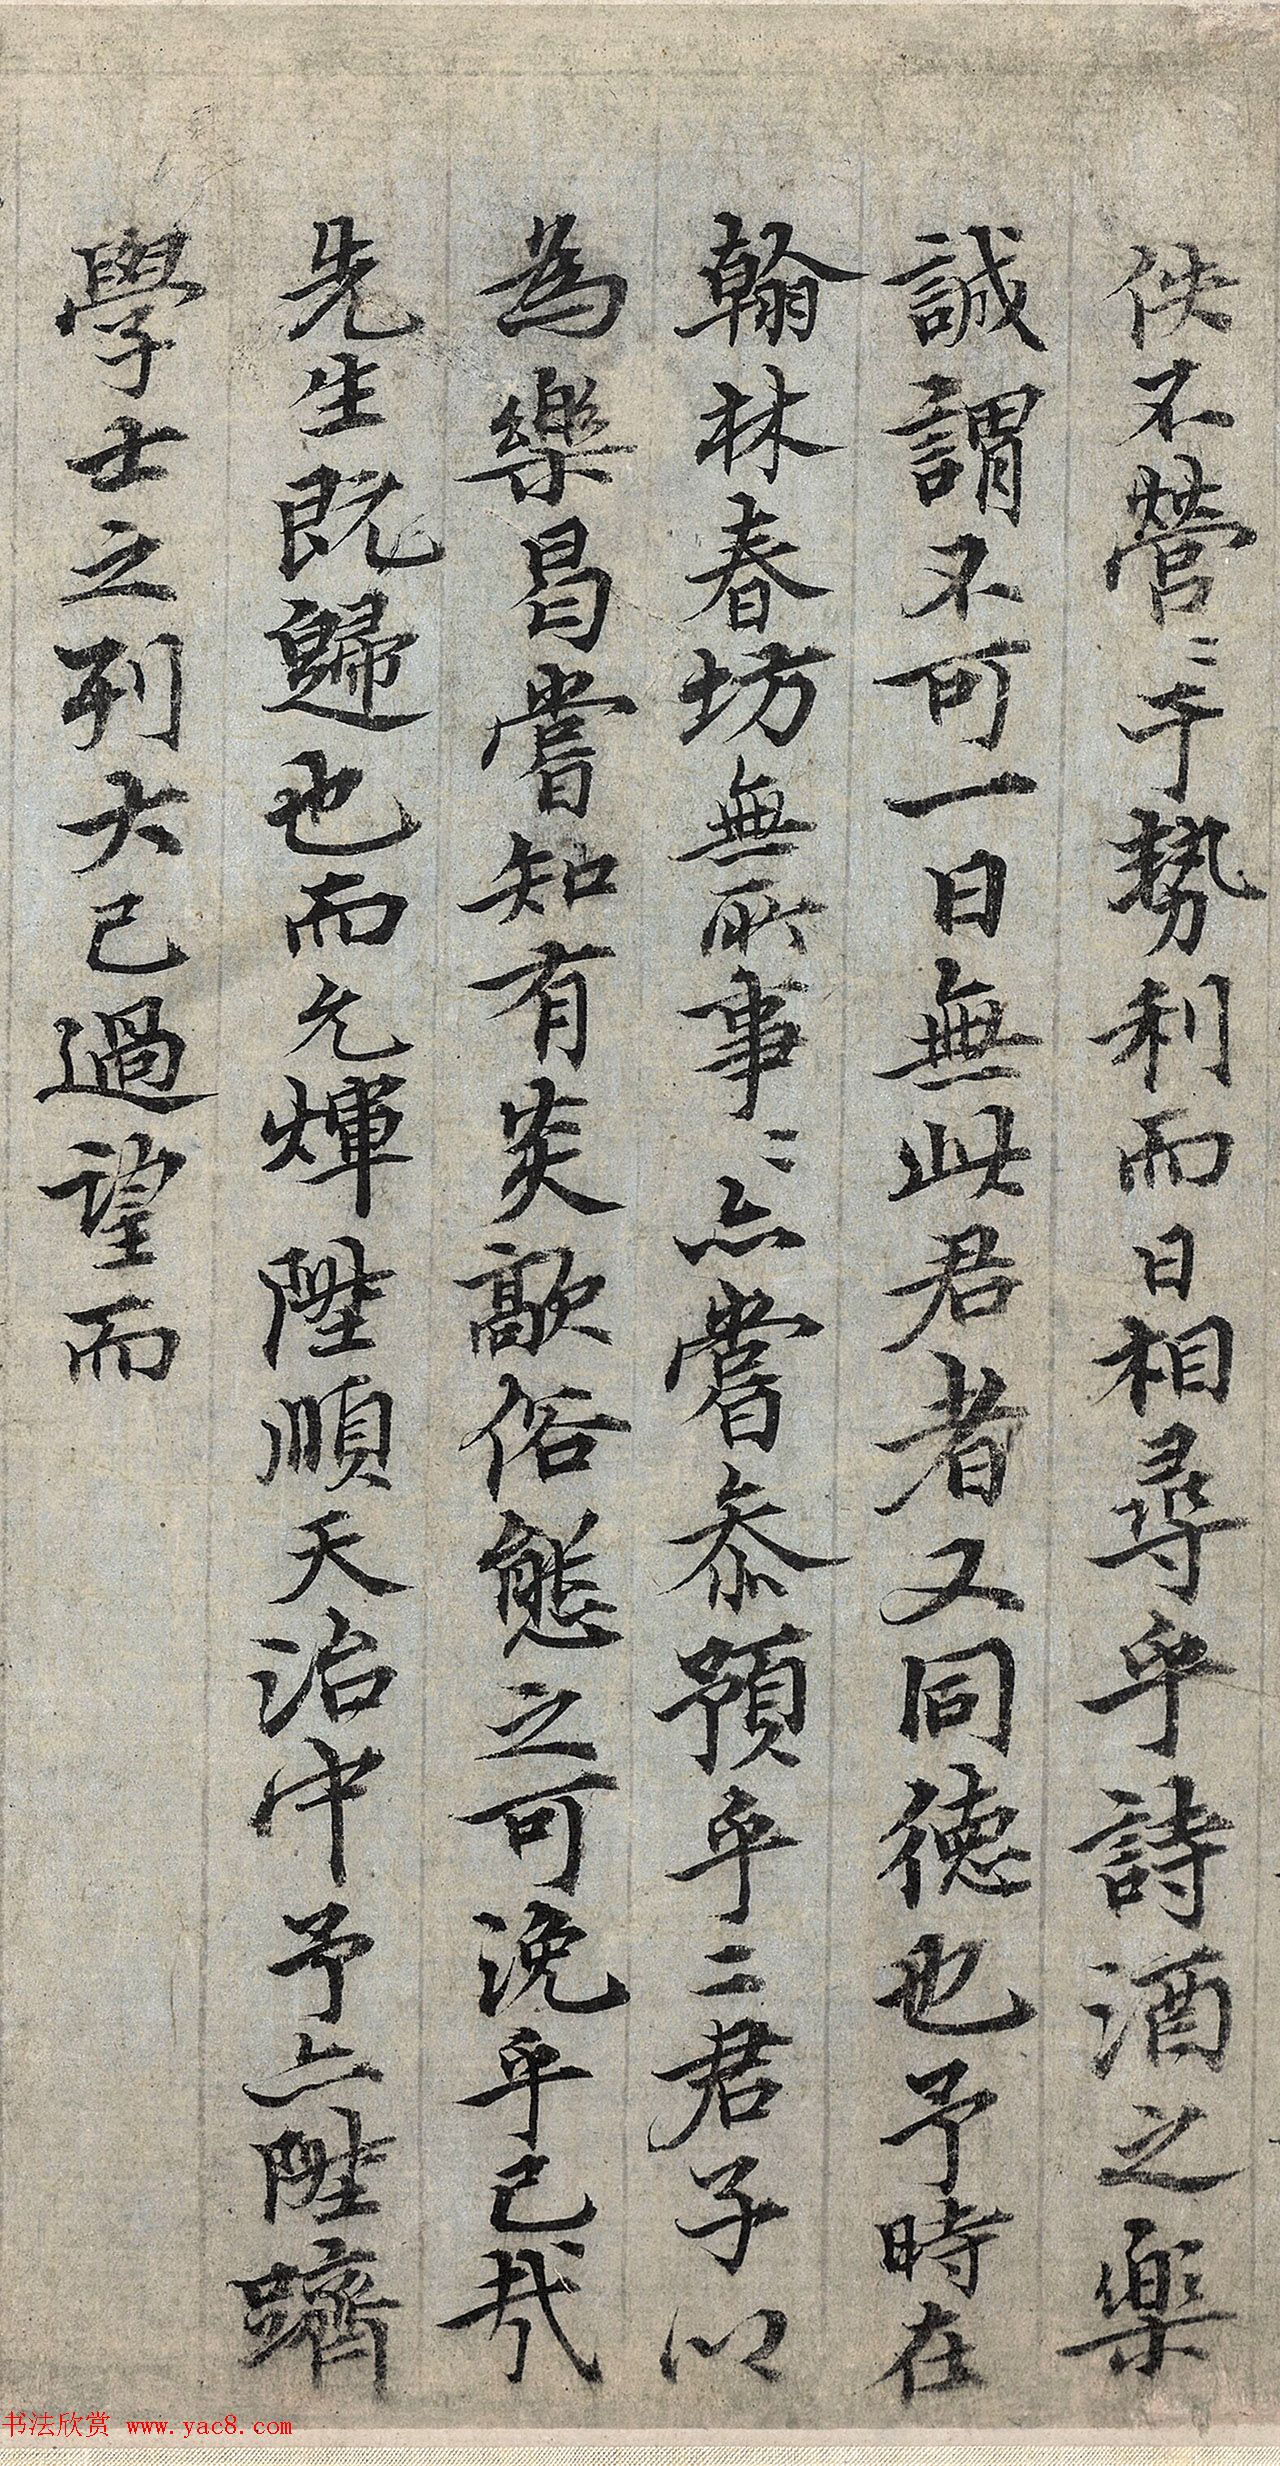 佚不營〻于勢利而日相尋乎詩酒之樂
誠謂不可一日無此君者又同德也予時在
翰林春坊無所事〻亦嘗參預乎二君子以
為樂曷嘗知有炎歊俗態之可浼乎己哉
先生既歸也而允煇陞順天治中予亦陞躋
學士之列大已過望而
书法欣赏 www.yac8.com